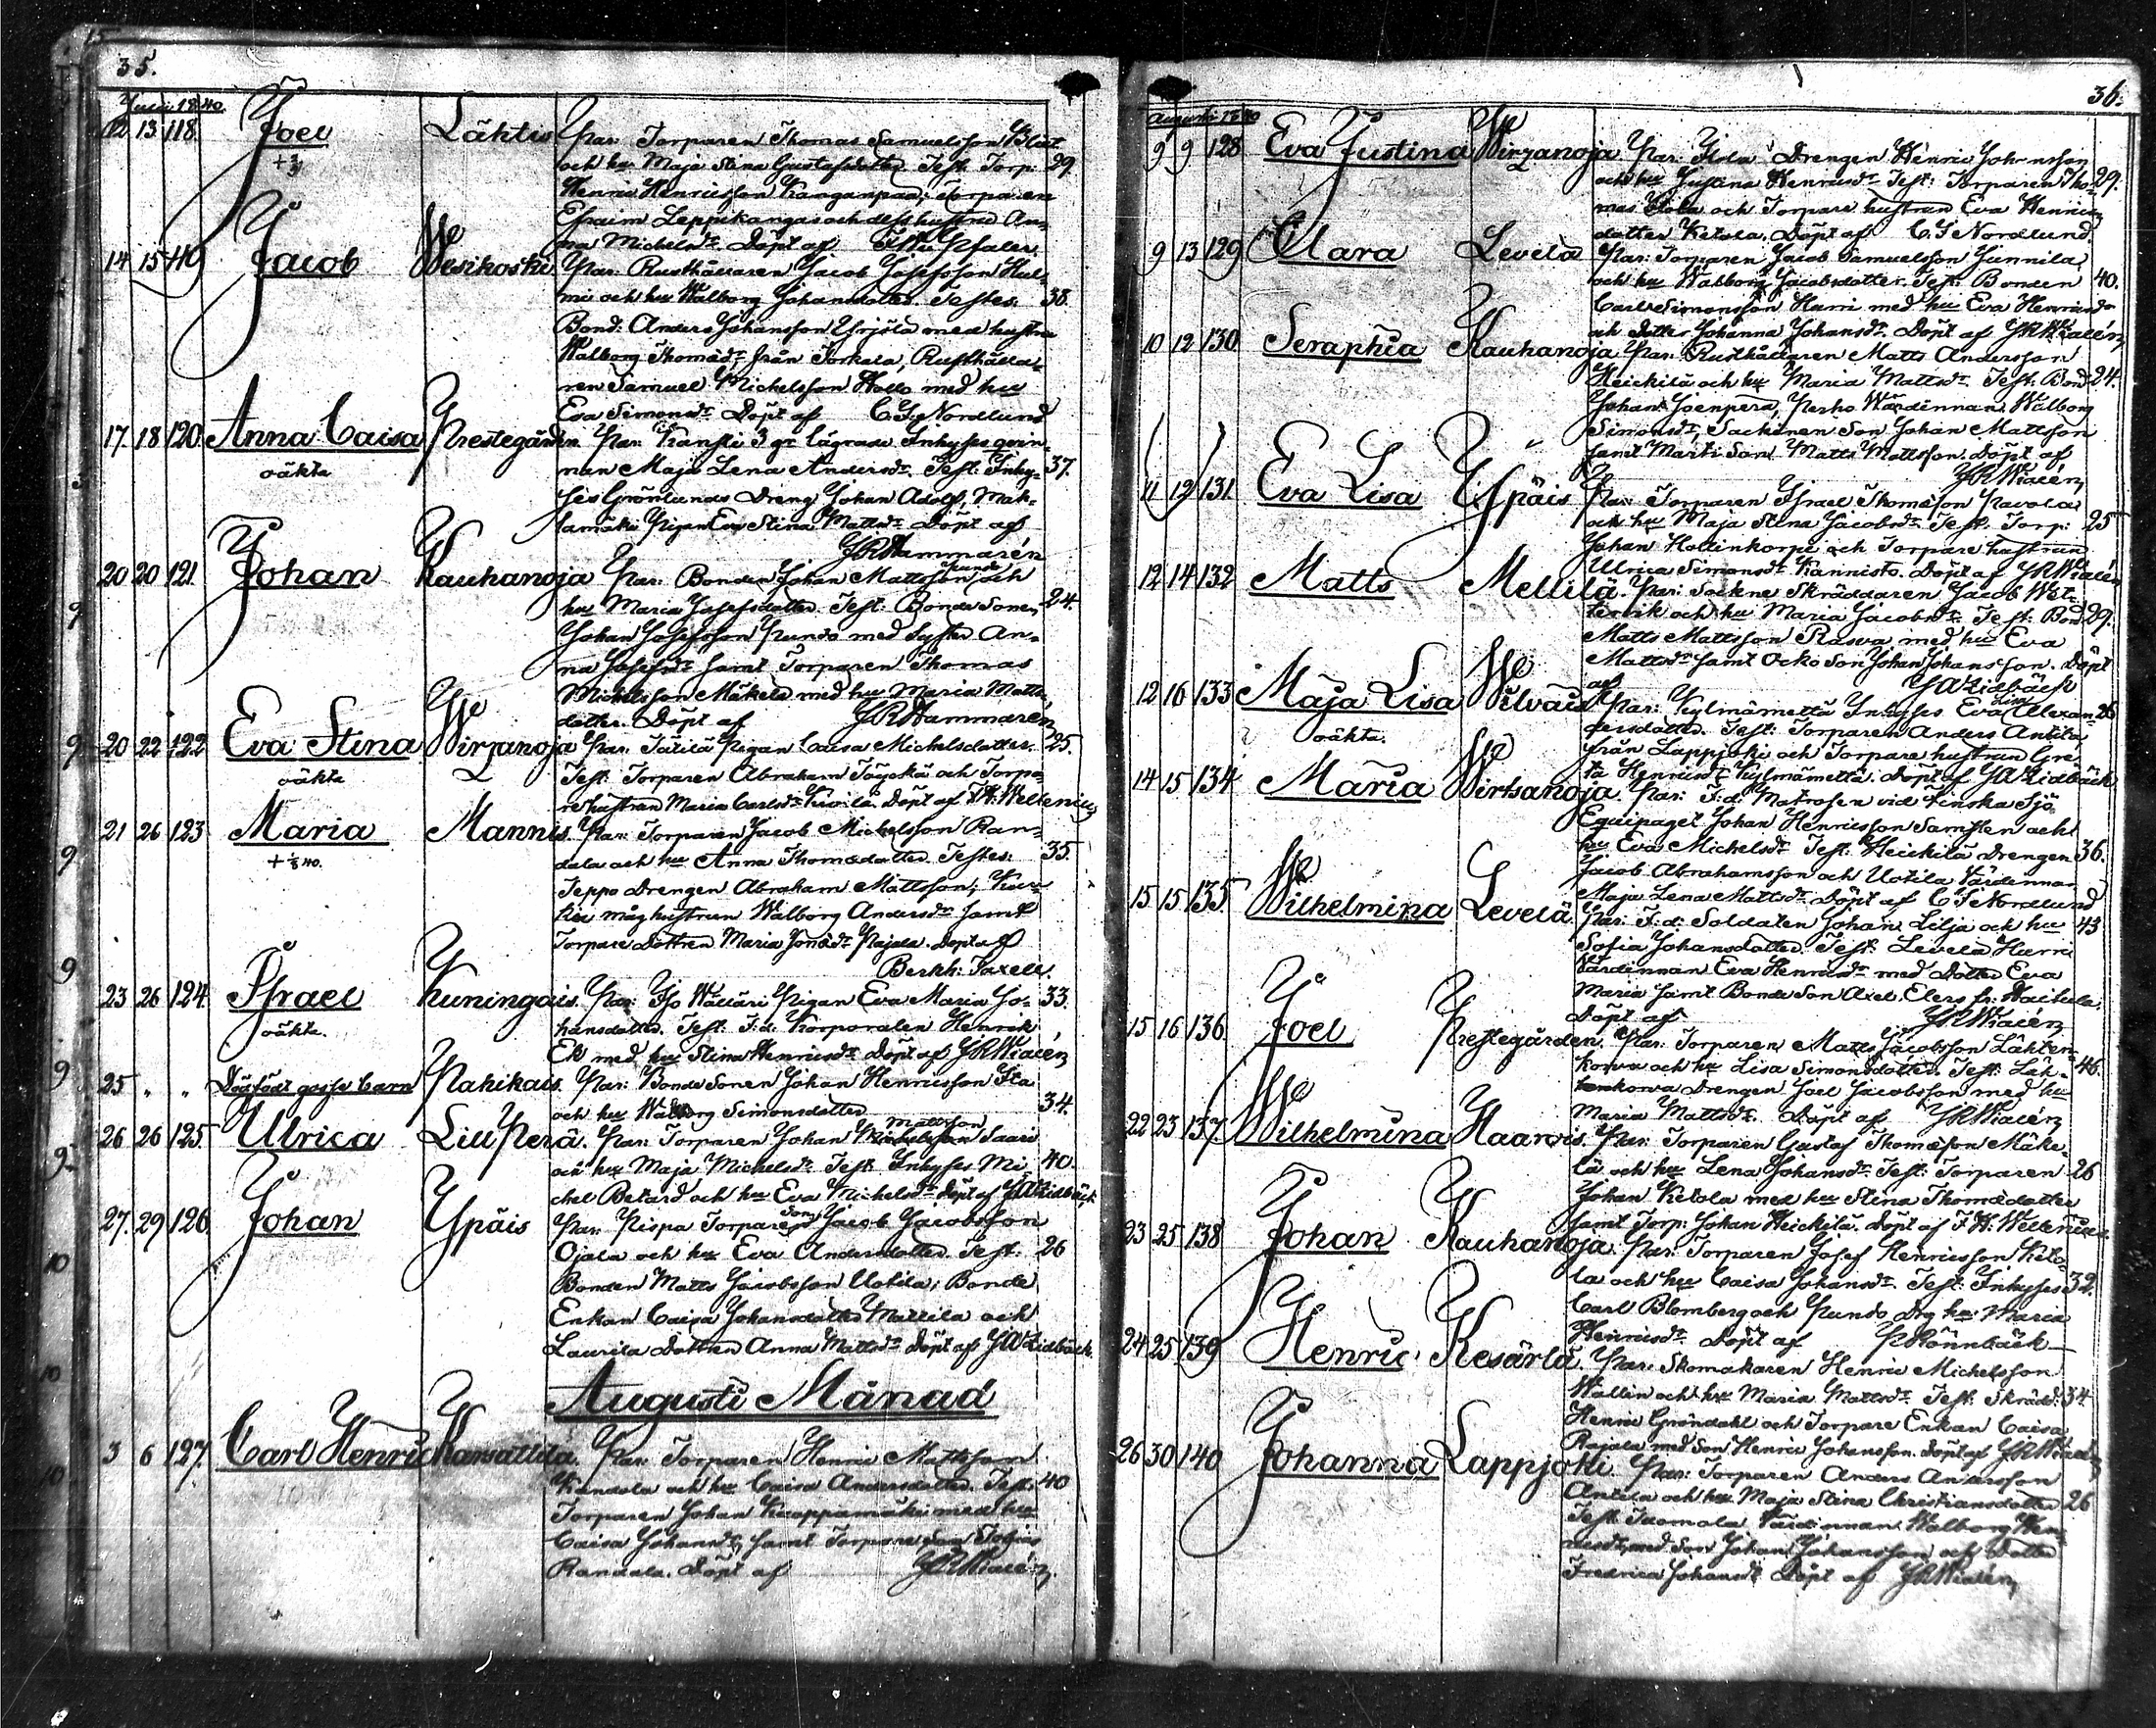 35.
Julii 1840.
12 13 118. Joel Lähtis Par: Torparen Thomas Samuelsson
och hu Maja Stina Gustafsdotter. Test: Torp: 29.
Henric Henricsson Kanganpää, Torparen
Efraim Leppikangas och dess hustru An-
na Michelsdr. Döpt af
14 15 119 Jacob Wesikoski Par: Rusthållaren Jacob Josefsson Hul-
mi och hu Walborg Johansdotter. Testes: 38.
Bond: Anders Johansson Yrjölä med hustru
Walborg Thomædr från Torkala, Rusthålla-
ren Samuel Michelsson Hollo med hu
Eva Simonsdr. Döpt af C. F. Nordlund
17. 18 120. Anna Caisa Prestegården. Par: Kansti 3 gr lägrade Inhyses qvin-
oäkta
nan Maja Lena Andersdr. Test: Inhy- 37.
ses Grönlunds Dreng Johan Adolf, Mak-
lamäki Pigan Eva Stina Mattsdr. Döpt af
JR Hammarén
20 20 121. Johan Kauhanoja Par: Bonden Johan Mattsson Pundo och
hu Maria Josefsdotter. Test: Bonde Sonen 24.
Johan Josefsson Pundo med Syster An-
na Josefsdr samt Torparen Thomas
Michelsson Mäkelä med hu Maria Matts-
dotter. Döpt af JR Hammarén
20 22 122 Eva Stina Wirzanoja Par: Pigan Caisa Michelsdotter. 25.
oäkta
Test: Torparen Abraham och Torpa-
re hustrun Maria Carlsdr Döpt af F. H. Wellenius
21 26 123 Maria Mannis. Par: Torparen Jacob Michelsson Ran-
dala och hu Anna Thomædotter. Testes: 35.
Seppo Drengen Abraham Mattsson,
måg hustrun Walborg Andersdr samt
Torpare Dottren Maria Jonædr Pajala. Döpt af
Berkh: Taxell.
23 26 124. Israel Kuningais. Par: Iso Wälläri Pigan Eva Maria Jo- 33.
oäkta.
hansdotter. Test: F:d: Korporalen Henrik
Ek med hu Stina Henricsdr. Döpt af JR Wialén
25 " " Dödfödt gosse barn Pahikais. Par: Bonde Sonen Johan Henricsson
och hu Walborg Simonsdotter 34.
26 26 125. Ulrica Liuperä. Par: Torparen Johan Mattsson Saari
och hu Maja Michelsdr. Test: Inhyses Mi- 40.
chel Betard och hu Eva Michelsdr Döpt af JA Lidbäck
27. 29 126. Johan Ypäis Par: Pispa Torpare Son Jacob Jacobsson
Ojala och hu Eva Andersdotter. Test: 26
Bonden Matts Jacobsson Uotila, Bonde
Enkan Caisa Johansdotter Mattila och
Laurila Dottren Anna Mattsdr Döpt af JA Lidbäck.
Augusti Månad
3 6 127. Carl Henric Karsattila. Par: Torparen Henric Mattsson
Kandola och hu Caisa Andersdotter. Test: 40
Torparen Johan Kuoppamäki med hu
Caisa Johansdr, samt Torpare Son Tobias
Randala. Döpt af JR Wialén.
36.
Augusti 1840
9 9 128 Eva Justina Wirzanoja Par: Drengen Henric Johansson
och hu Justina Henricsdr. Test: Torparen Tho- 29.
mas och Torpare hustrun Eva Henrics-
dotter Ketola. Döpt af C. F. Nordlund.
9 13 129 Clara Levelä Par: Torparen Jacob Samuelsson Junnila
och hu Walborg Jacobsdotter. Test: Bonden 40.
Carl Simonsson Harri med hu Eva Henricsdr
och dotter Johanna Johansdr. Döpt af JR Wialén
10 12 130 Seraphia Kauhanoja Par: Rusthållaren Matts Andersson
Heickilä och hu Maria Mattsdr. Test: Bond: 24.
Johan Joenperä, Perho Wärdinnan Walborg
Simonsdr, Sackinen Son Johan Mattsson
samt Martti Son Matts Mattsson. Döpt af
JR Wialén
11 12 131 Eva Lisa Ypäis Par: Torparen Israel Thomæson Pavola
och hu Maja Stina Jacobsdr. Test: Torp: 25
Johan Hollinkorpi och Torpare hustrun
Ulrica Simonsdr Kannisto. Döpt af JR Wialén
12 14 132 Matts Mellilä. Par: Sockne Skräddaren Jacob Wet-
tervik och hu Maria Jacobsdr. Test: Bond: 29.
Matts Mattsson Rasva med hu Eva
Mattsdr samt Ocko Son Johan Johansson. Döpt
af JA Lidbäck
12 16 133 Maja Lisa Wilvais Par: Kylmämettä Inhyses Eva Lisa Alexan- 26
oäkta.
dersdotter. Test: Torparen Anders Antila
från Lappjoki och Torpare hustrun Gre-
ta Henricsdr Kylmämettä. Döpt af JA Lidbäck
14 15 134 Maria Wirtsanoja. Par: F:d: Matrosen vid Finska Sjö
Equipaget Johan Henricsson Samsten och
hu Eva Michelsdr. Test: Heickilä Drengen 36.
Jacob Abrahamsson och Uotila Värdinnan
Maja Lena Mattsdr. Döpt af C F Nordlund
15 15 135 Wilhelmina Levelä. Par: F:d: Soldaten Johan Lilja och hu 43
Sofia Johansdotter. Test: Levelä Harri
Värdinnan Eva Henricsdr med Dotter Eva
Maria samt Bonde Son Axel Elers fr:
Döpt af JR Wialén
15 16 136. Joel Prestegården. Par: Torparen Matts Jacobsson Lähten-
korva och hu Lisa Simonsdotter. Test: Läh- 46.
tenkorva Drengen Joel Jacobsson med hu
Maria Mattsdr. Döpt af JR Wialén
22 23 137. Wilhelmina Haarois. Par: Torparen Gustaf Thomæson Mäke-
lä och hu Lena Johansdr. Test: Torparen 26
Johan Ketola med hu Stina Thomædotter
samt Torp: Johan Heickilä. Döpt af F. H. Wellenius
23 25 138 Johan Kauhanoja. Par: Torparen Josef Henricsson Keto-
la och hu Caisa Johansdr. Test: Inhyses 32.
Carl Blomberg och Pundo Drg hu: Maria
Henricsdr. Döpt af P Rönnbäck
24 25 139 Henric Kesärlä. Par: Skomakaren Henric Michelsson
Wallin och hu Maria Mattsdr. Test: Skrädd: 34
Henric Gröndahl och Torpare Enkan Caisa
Rajala med Son Henric Johansson. Döpt af JR Wialén
26 30 140 Johanna Lappjoki. Par: Torparen Anders Andersson
Antila och hu Maja Stina Christiansdotter 26
Test: Tuomola Värdinnan Walborg Hen-
ricsdr, med Son Johan Johansson och Dotter
Fredrica Johansdr Döpt af JR Wialén